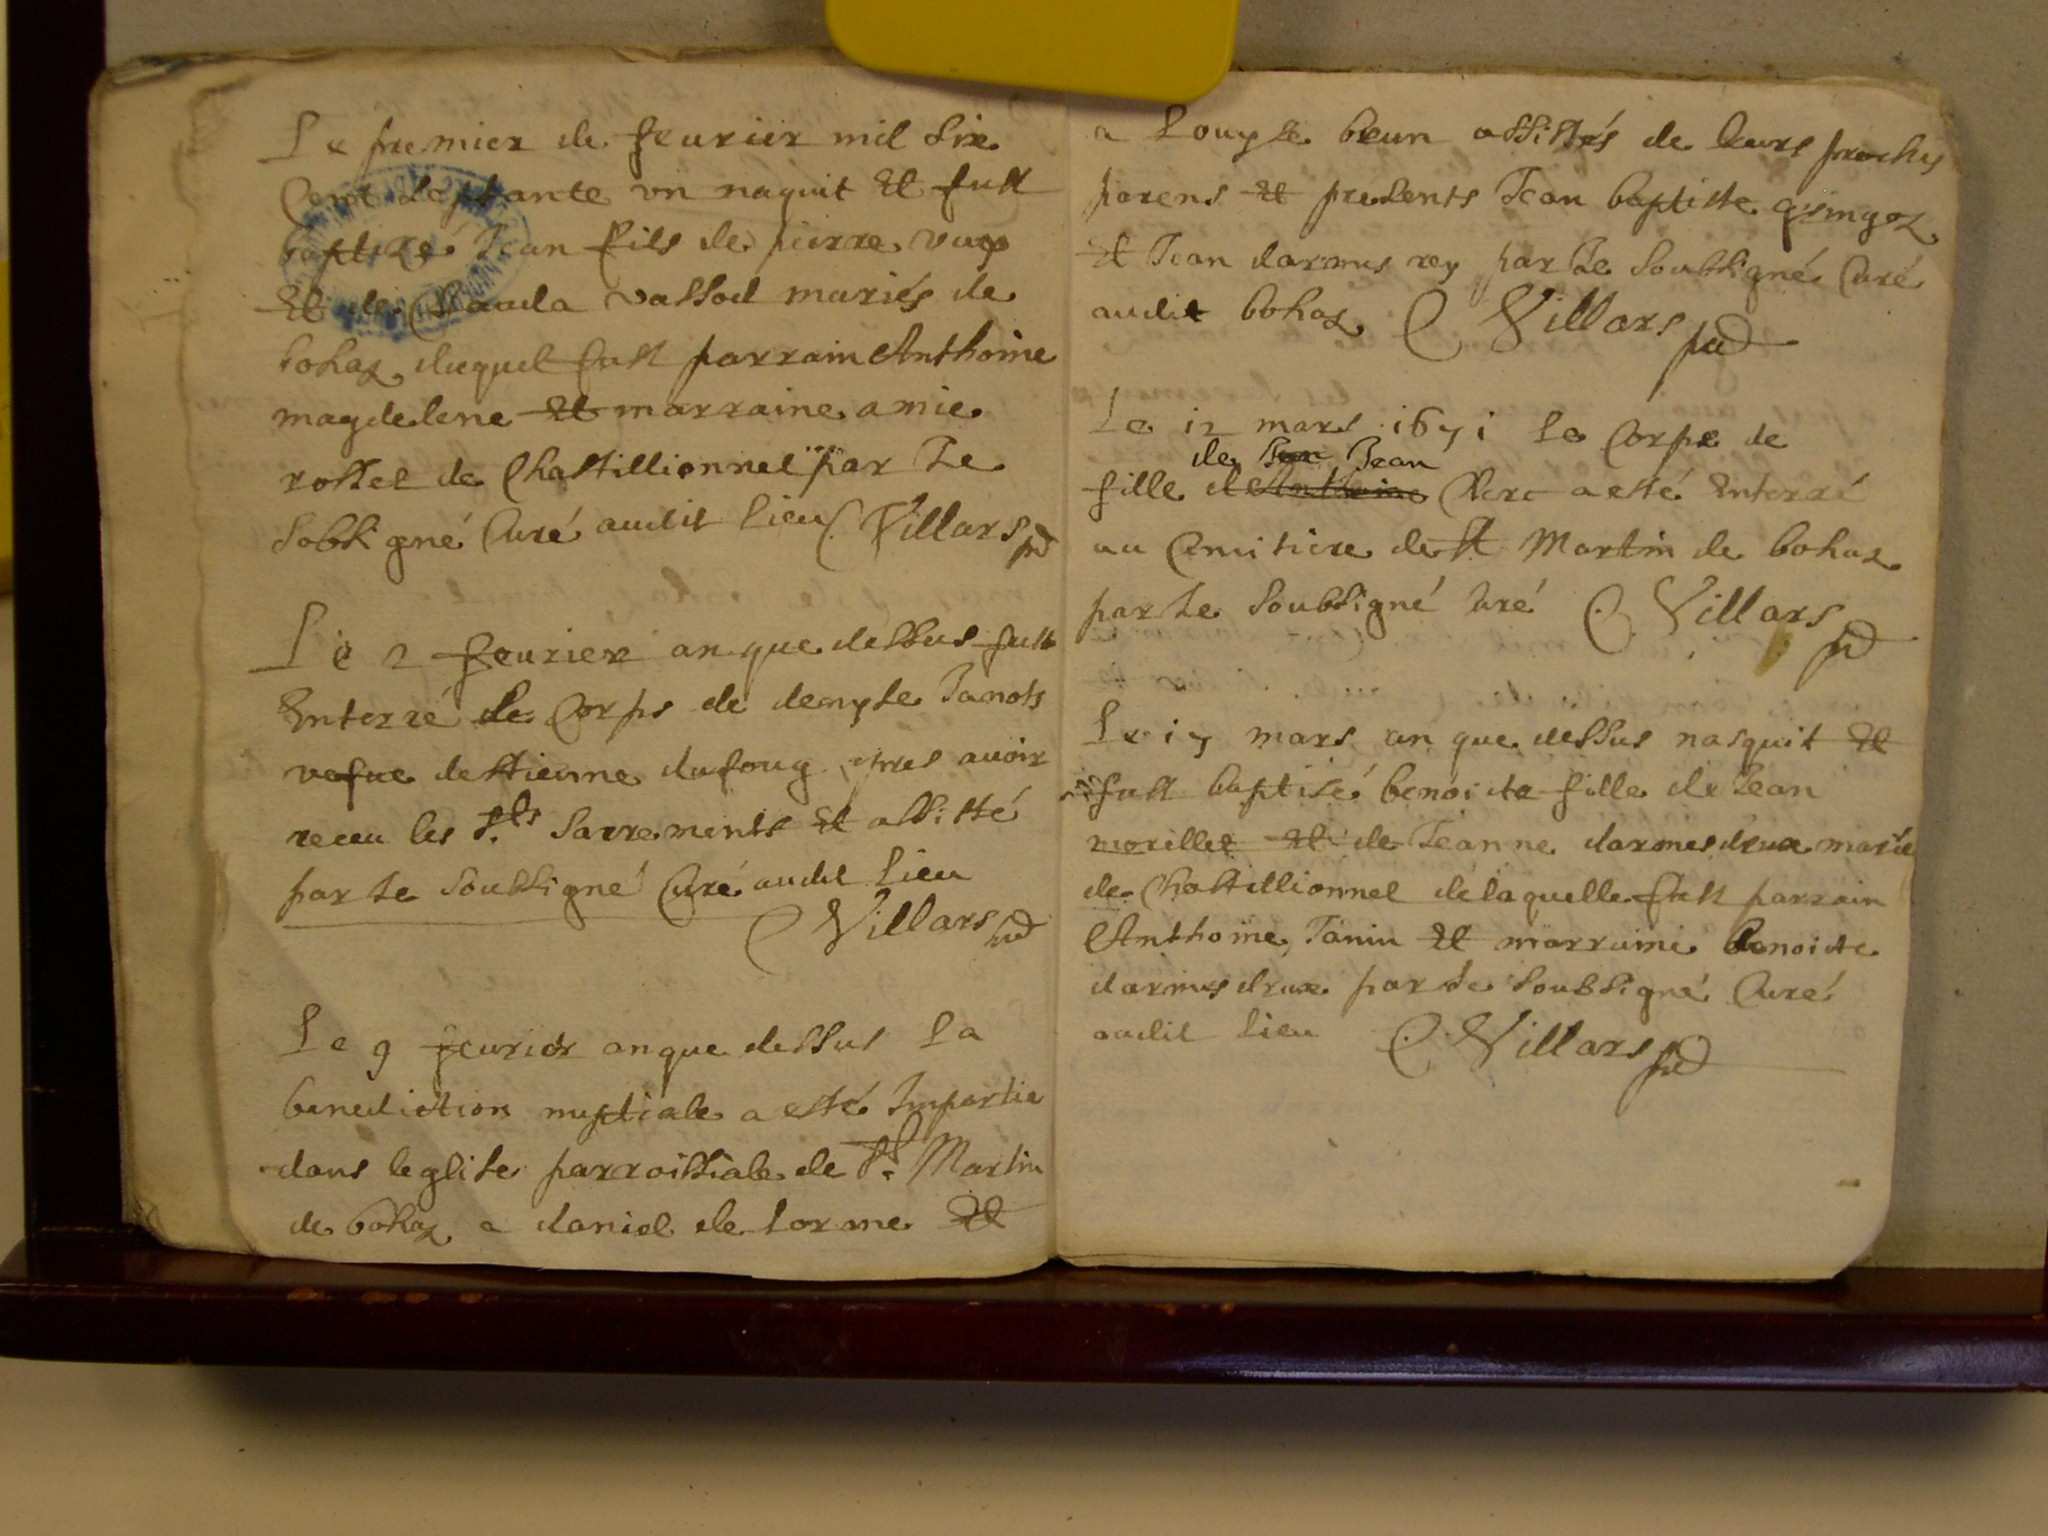 Le premier de feurier mil six
Cent septante vn naquit et fust
baptizé Jean fils de pierre vuy
et de Clauda vassod mariés de
bohaz duquel fust parrain Anthoine
magdelene et marraine amie
rosset de Chastillionnel par Je
sobsigné Curé audit lieu C. Villars
Le 2 feurier an que dessus fust
Enterré le Corps de denyse Janots
vefue destienne dufoug apres auoir
receu les Sts sacrements et assisté
par Je soubsigné Curé audit lieu
C Villars
Le 9 feurier an que dessus La
benediction nuptiale a esté Impartie
dans leglise parroissiale de St Martin
de bohaz a daniel de lorme et
a Louyse brun assistés de leurs prochs
parens et presents Jean baptiste
et Jean darmus rey par Je soubsigné Curé
audit bohaz C Villars
Le 12 mars 1671 Le Corps de
de Jean Jean
fille d'Anthoine Clerc a esté Enterré
au Cimitiere de St Martin de bohaz
par Je soubsigné Curé C. Villars
Le 17 mars an que dessus nasquit et
fust baptisé benoicte fille de Jean
morillet et de Jeanne darmesdrux mariés
de Chastillionnel de laquelle fust parrain
Anthoine Janin et marraine benoicte
darmusdrux par Je soubsigné Curé
audit lieu C. Villars